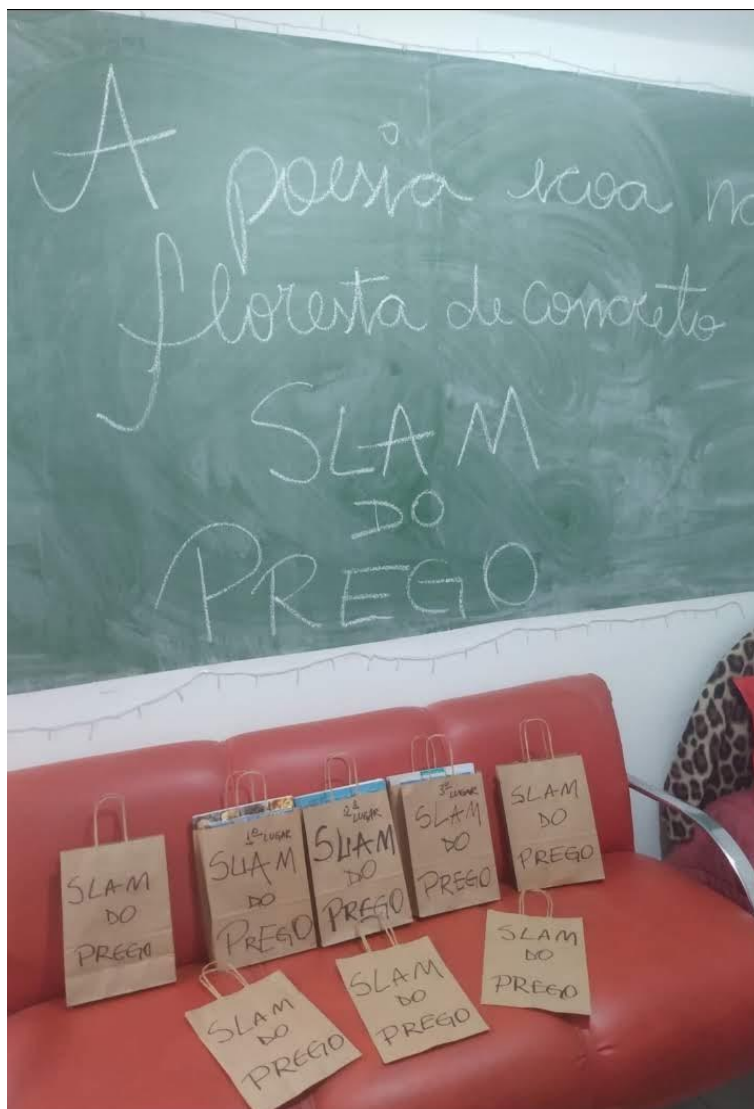 A poesia ecoa na
floresta de concreto
SLAM
DO
PREGO
SLAM
DO
PREGO
1º LUGAR
SLAM
DO
PREGO
2º
LUGAR
SLAM
DO
PREGO
3º LUGAR
SLAM
DO
PREGO
SLAM
DO
PREGO
SLAM
DO
PREGO
SLAM
DO
PREGO
SLAM
DO
PREGO